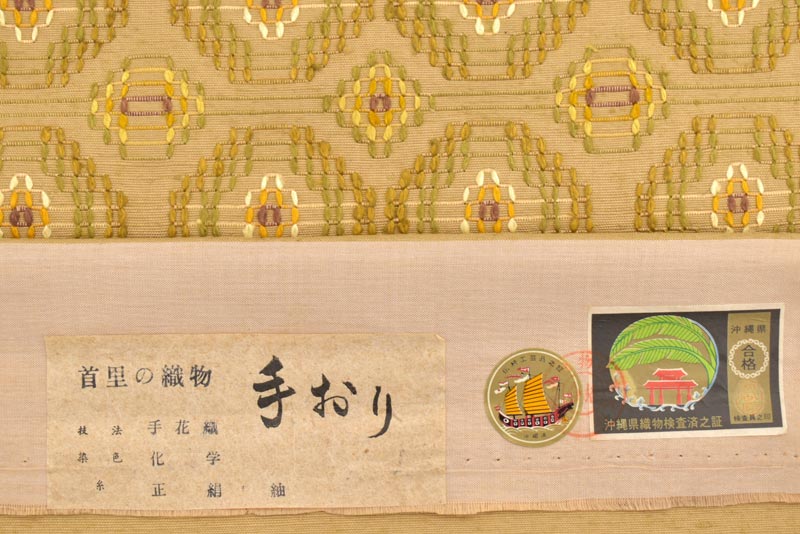 首里の織物
手おり
技法 手花織
染色 化学
糸 正絹 紬
沖縄県
合格
検査員之印
沖縄県織物検査済之証